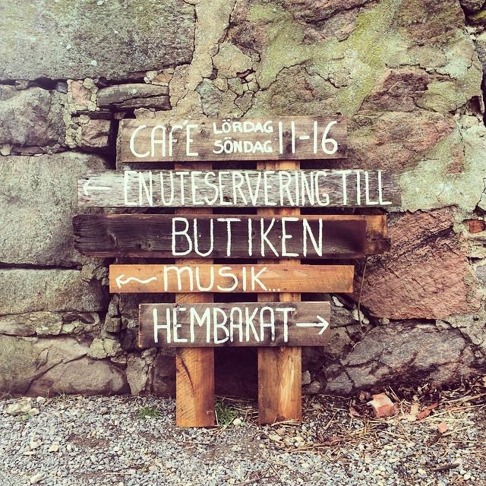 CAFÉ LÖRDAG SÖNDAG 11-16
← EN UTESERVERING TILL
BUTIKEN
← MUSIK...
HEMBAKAT →